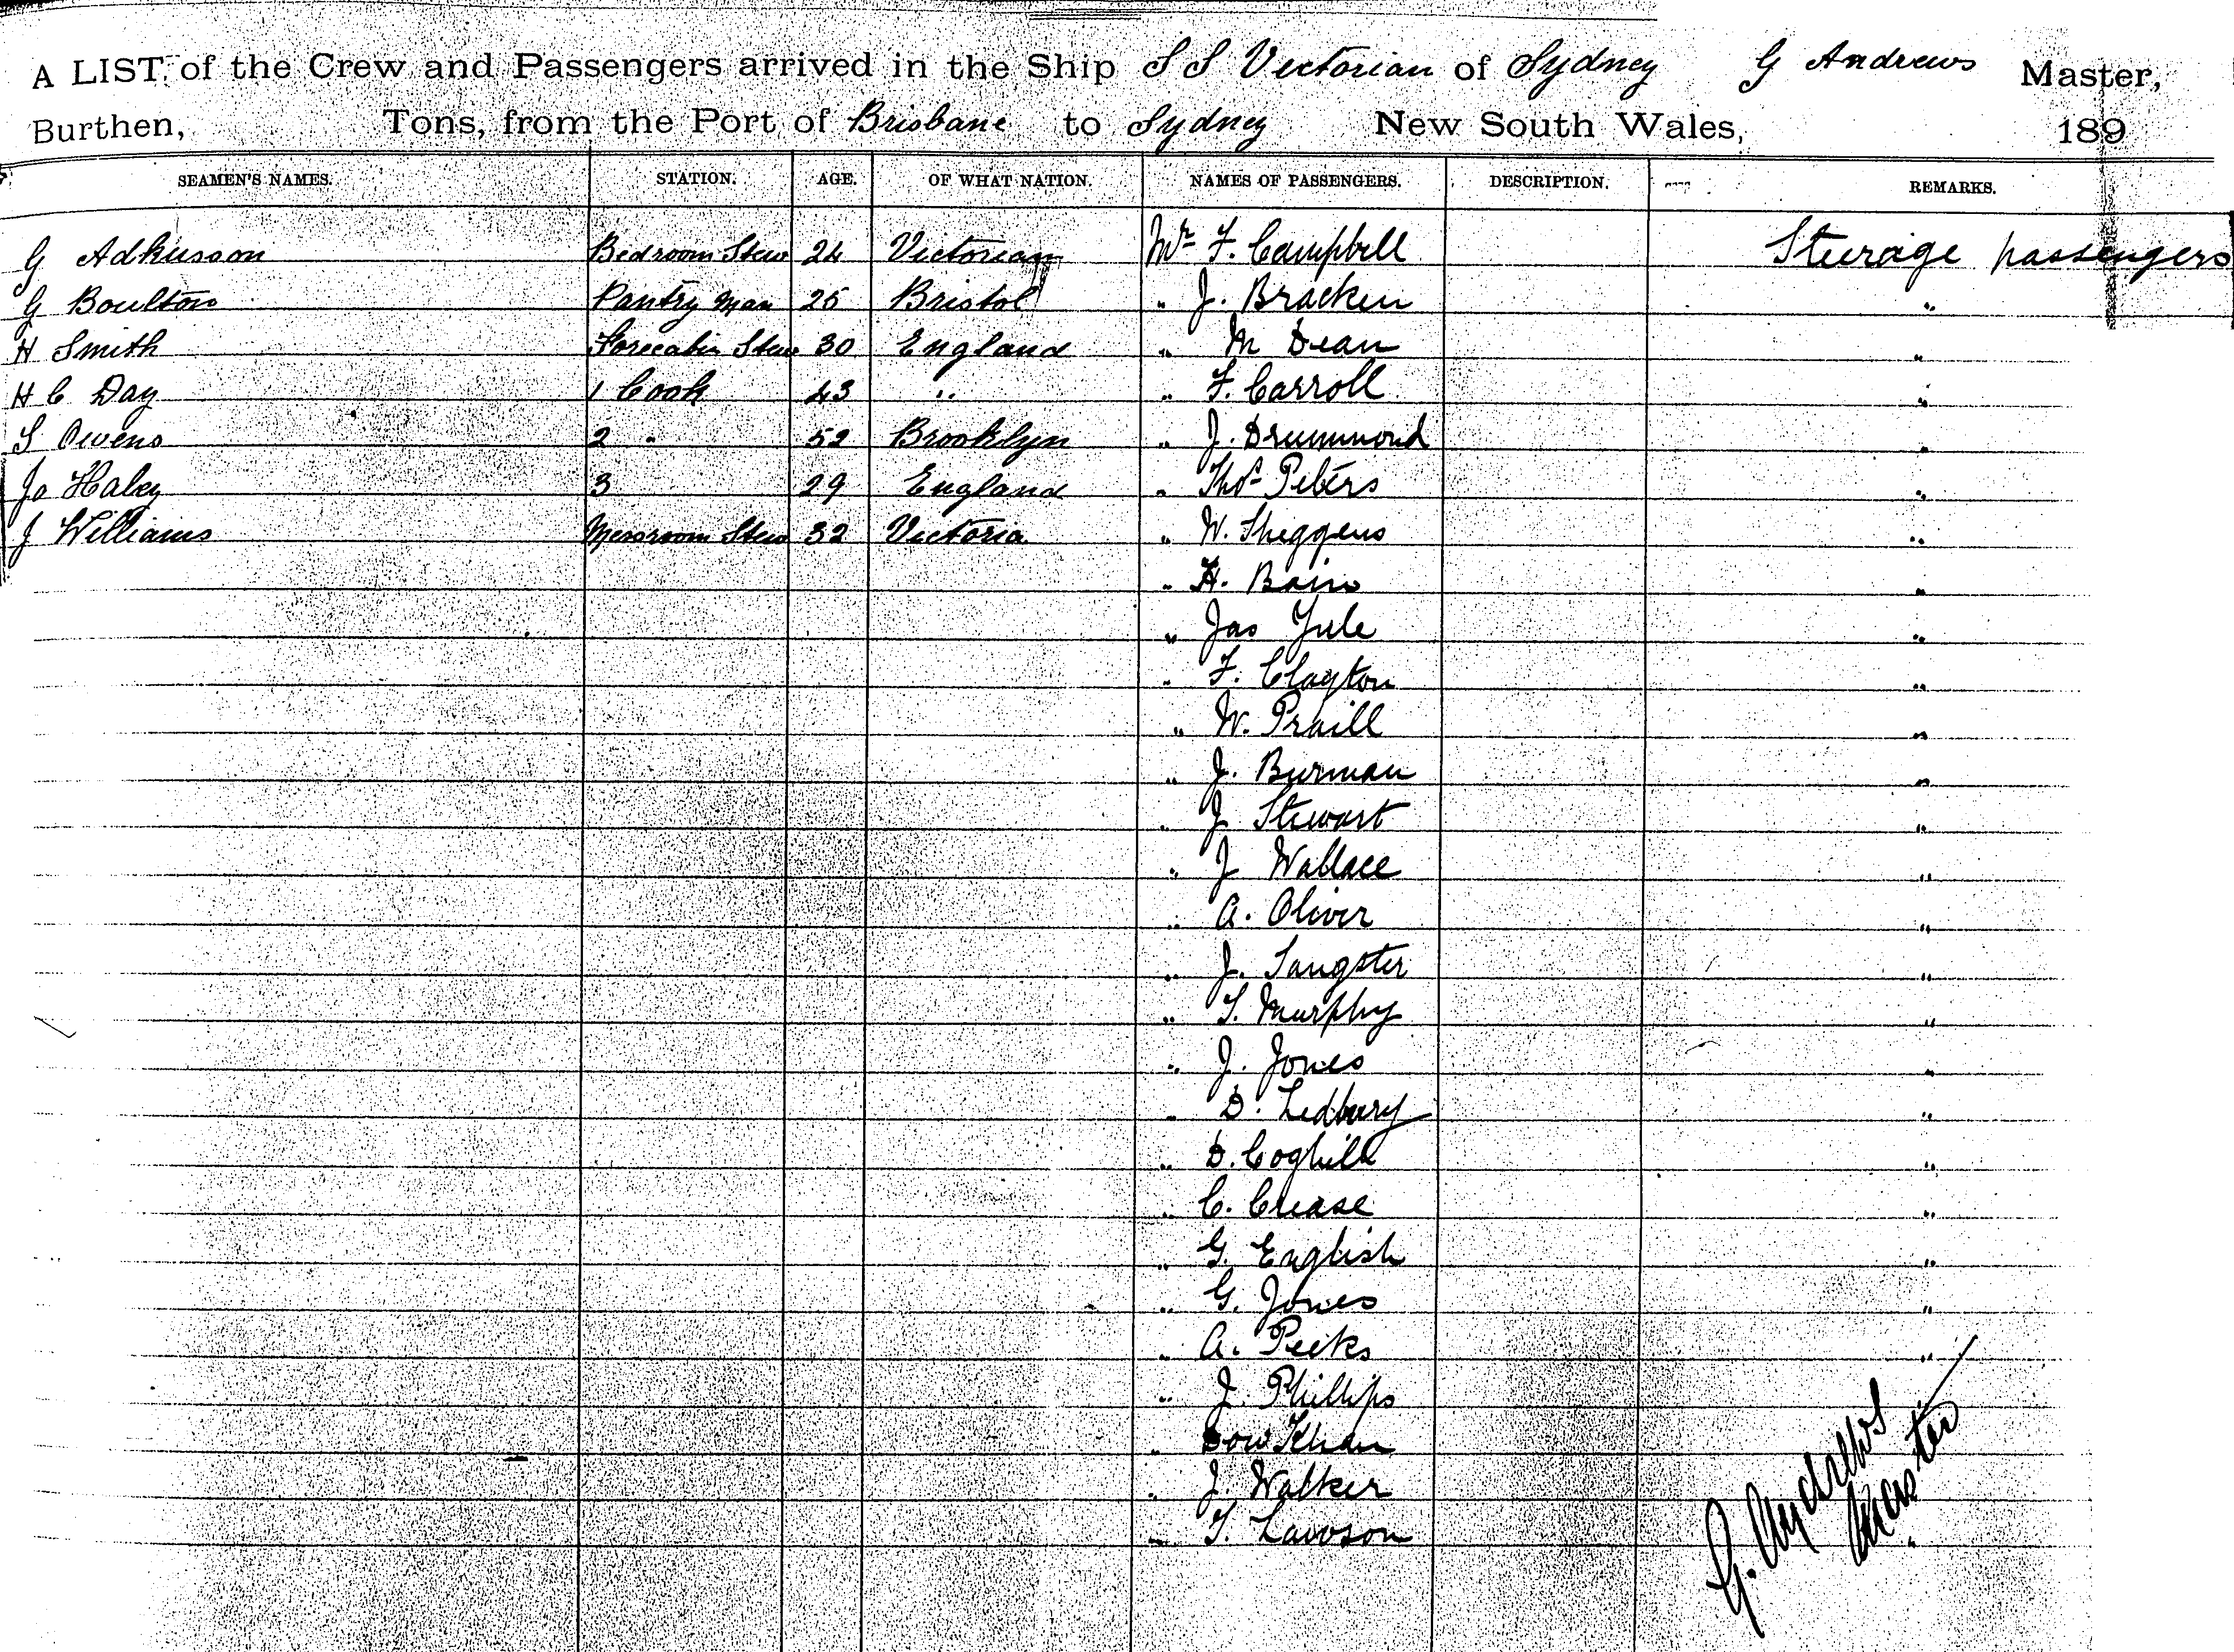 A LIST of the Crew and Passengers arrived in the Ship S S Victorian of Sydney G Andrews Master,
Burthen, Tons, from the Port of Brisbane to Sydney New South Wales, 189
SEAMEN'S NAMES. STATION. AGE. OF WHAT NATION. NAMES OF PASSENGERS. DESCRIPTION. REMARKS.
G Adkusson Bedroom Stew 24 Victorian Mr F. Campbell Steerage passengers
G Boulton Pantry Man 25 Bristol " J. Bracken "
H Smith Forecabin Stew 30 England " M Dean "
H C Day 1 Cook 43 " " F. Carroll "
S Owens 2 " 52 Brooklyn " J. Drummond "
Jo Haley 3 29 England " Thos Peters "
J Williams Messroom Stew 32 Victoria " W. Sheggens "
" H. Bain "
" Jas Yule "
" F. Clayton "
" W. Praill "
" J. Burman "
" J Stewart "
" J Wallace "
" A. Oliver "
" J. Sangster "
" T. Murphy "
" J. Jones "
" D. Ledbury "
" D. Coghill "
" C. Crease "
" G. English "
" G. Jones "
" A. Peeks "
" J. Phillips "
" Dow Khan
" J. Walker
" T. Lawson
G. Andrews
Master